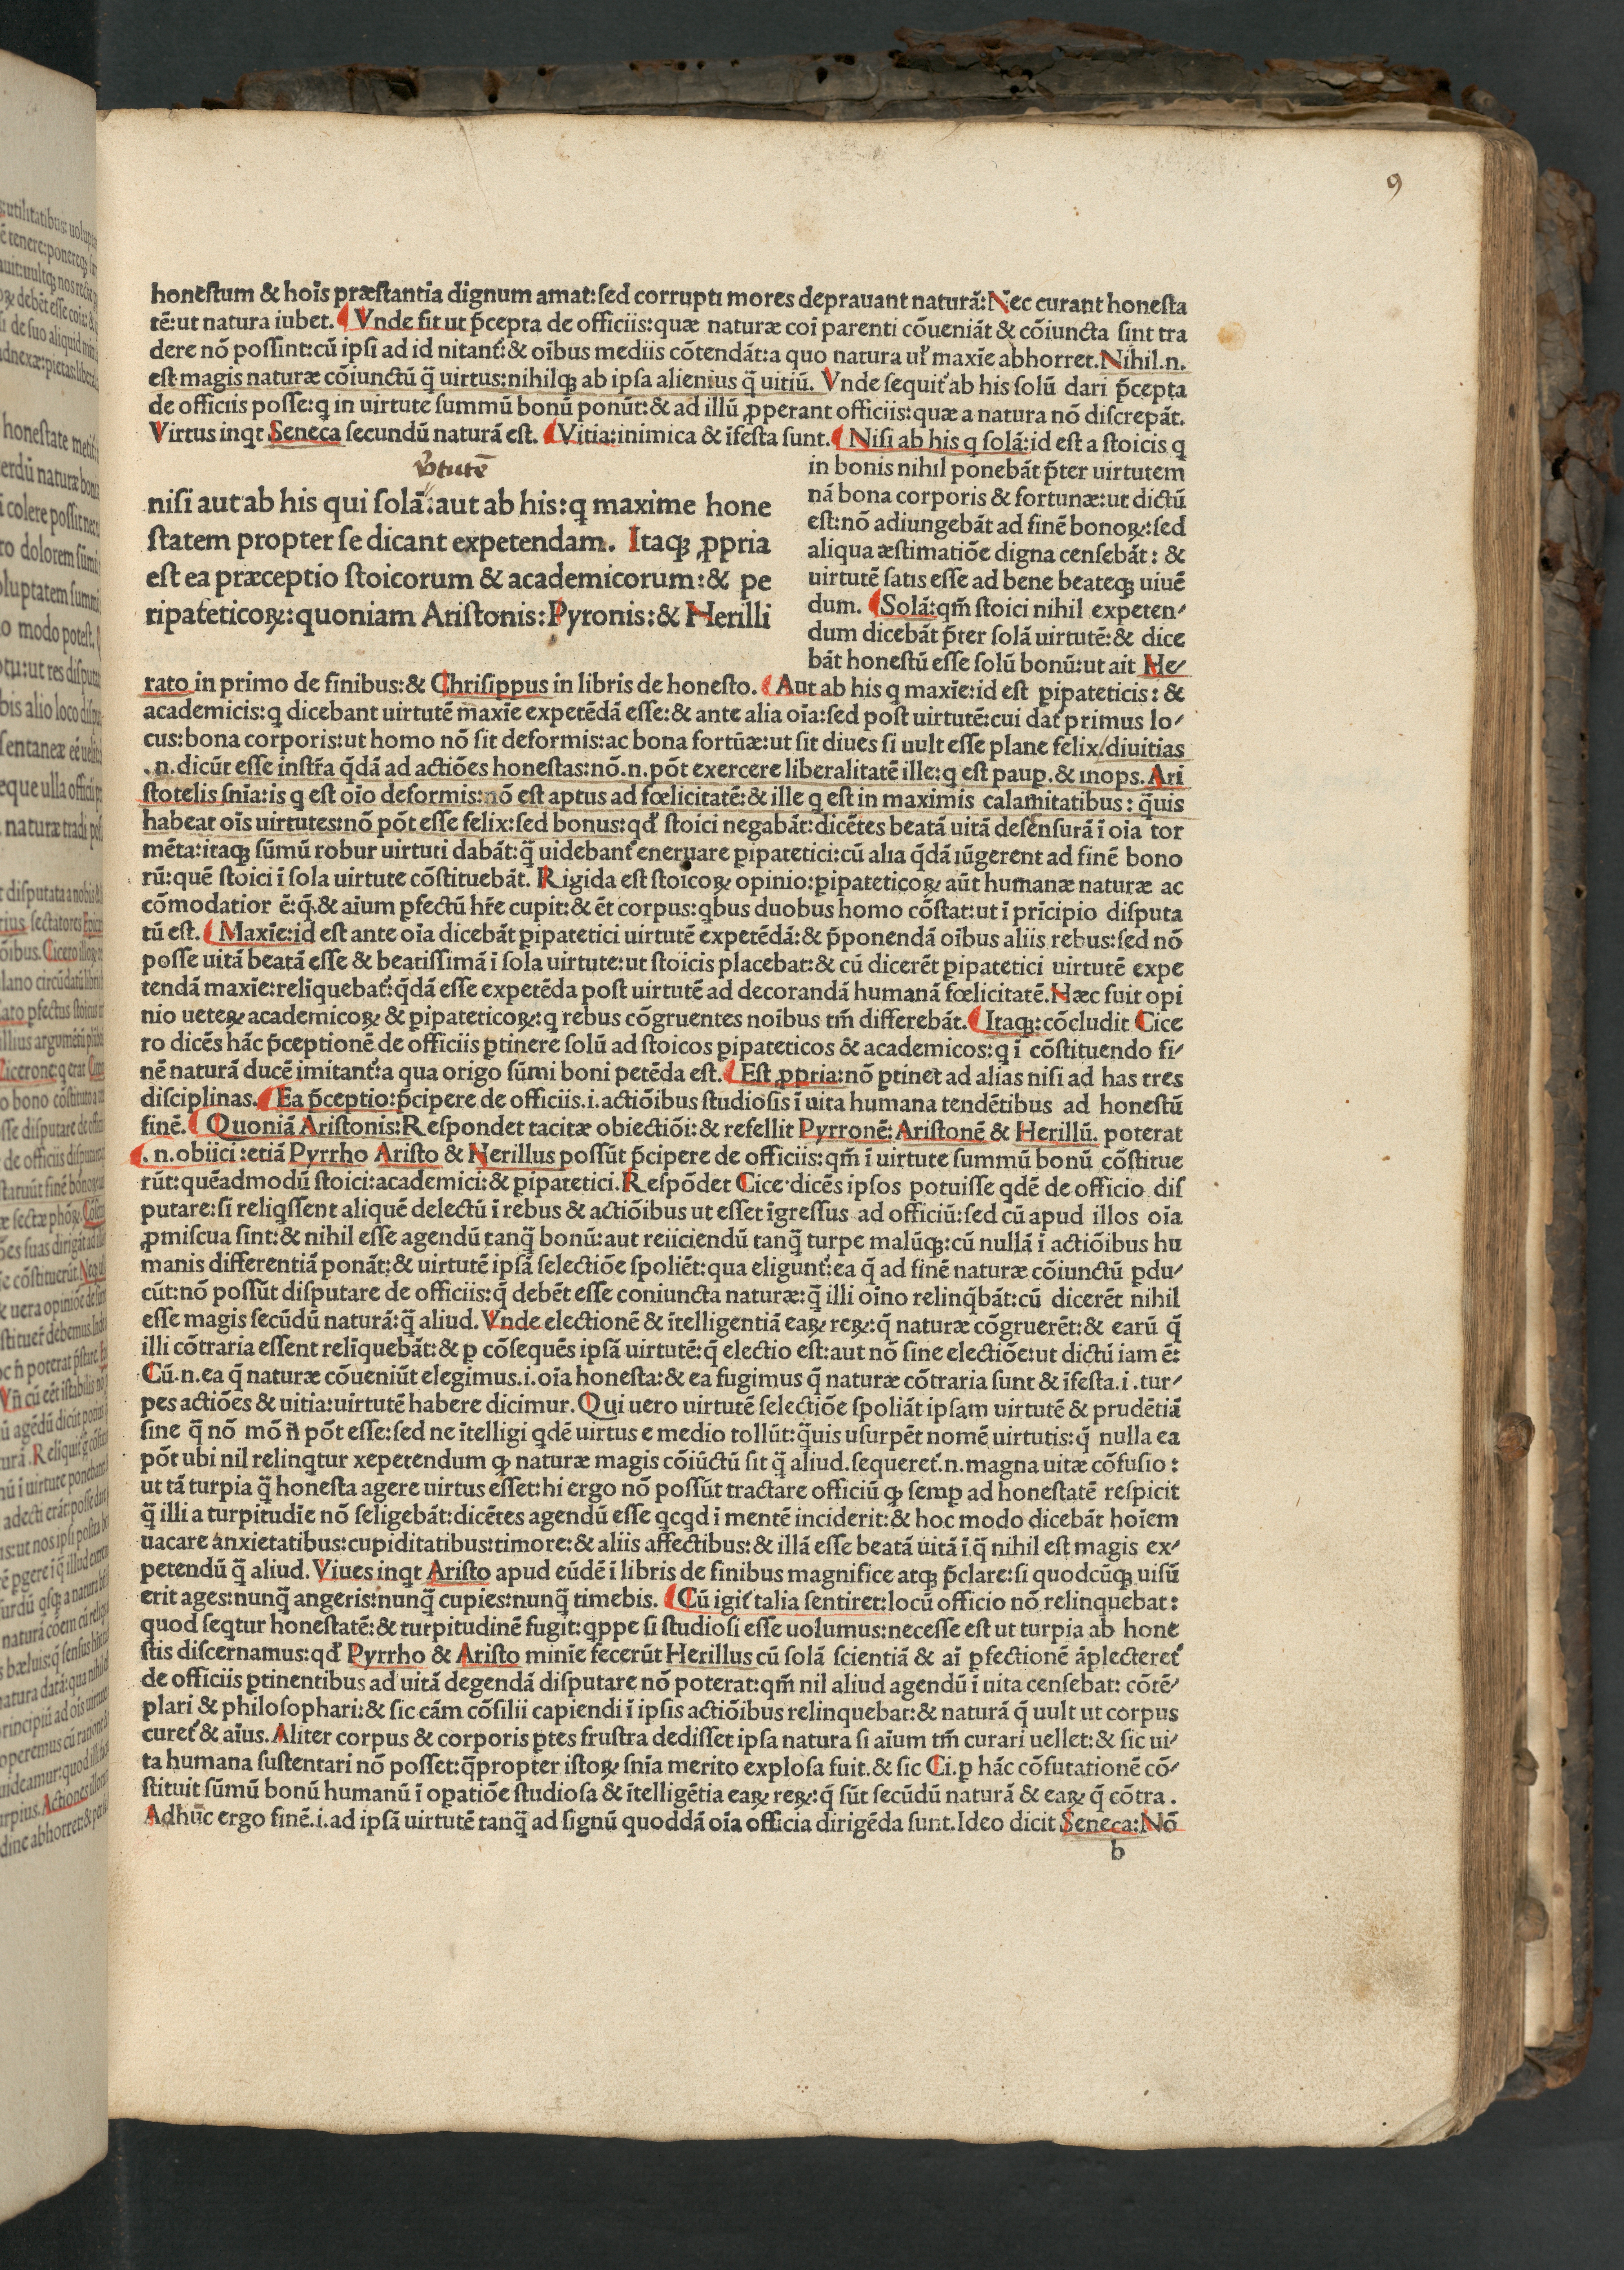 9
honestum & hoīs præstantia dignum amat:sed corrupti mores deprauant naturā:Nec curant honesta
tē:ut natura iubet. Vnde fit ut p̄cepta de officiis:quæ naturæ coī parenti cōueniāt & cōiuncta sint tra
dere nō possint:cū ipsi ad id nitant᷑:& oībus mediis cōtendāt:a quo natura ul᷑ maxīe abhorret.Nihil.n.
est magis naturæ cōiunctū q̄ uirtus:nihilqꝫ ab ipsa alienius q̄ uitiū. Vnde sequit᷑ ab his solū dari p̄cepta
de officiis posse:ꝗ in uirtute summū bonū ponūt:& ad illū ꝓperant officiis:quæ a natura nō discrepāt.
Virtus inqt Seneca secundū naturā est. Vitia:inimica & īfesta sunt. Nisi ab his ꝗ solā:id est a stoicis ꝗ
in bonis nihil ponebāt p̄ter uirtutem
nā bona corporis & fortunæ:ut dictū
est:nō adiungebāt ad finē bonoꝝ:sed
aliqua æstimatiōe digna censebāt: &
uirtutē satis esse ad bene beateqꝫ uiuē
dum. Solā:qm̄ stoici nihil expeten⸗
dum dicebāt p̄ter solā uirtutē:& dice
bāt honestū esse solū bonū:ut ait He⸗
v̄tutē
nisi aut ab his qui solā:aut ab his:ꝗ maxime hone
statem propter se dicant expetendam. Itaqꝫ ꝓpria
est ea præceptio stoicorum & academicorum:& pe
ripateticoꝝ:quoniam Aristonis:Pyronis:& Herilli
rato in primo de finibus:& Chrisippus in libris de honesto. Aut ab his ꝗ maxīe:id est ꝑipateticis: &
academicis:ꝗ dicebant uirtutē maxīe expetēdā esse:& ante alia oīa:sed post uirtutē:cui dat᷑ primus lo⸗
cus:bona corporis:ut homo nō sit deformis:ac bona fortūæ:ut sit diues si uult esse plane felix/diuitias
.n.dicūt esse instr̄a q̄dā ad actiōes honestas:nō.n.pōt exercere liberalitatē ille:ꝗ est pauꝑ.& inops.Ari
stotelis snīa:is ꝗ est oīo deformis:nō est aptus ad fœlicitatē:& ille ꝗ est in maximis calamitatibus: q̄uis
habeat oīs uirtutes:nō pōt esse felix:sed bonus:qd᷑ stoici negabāt:dicētes beatā uitā defensurā ī oīa tor
mēta:itaqꝫ sūmū robur uirtuti dabāt:q̄ uidebant᷑ eneruare ꝑipatetici:cū alia q̄dā iūgerent ad finē bono
rū:quē stoici ī sola uirtute cōstituebāt. Rigida est stoicoꝝ opinio:ꝑipateticoꝝ aūt humanæ naturæ ac
cōmodatior ē:q̄.& aīum ꝑfectū hr̄e cupit:& ēt corpus:ꝗbus duobus homo cōstat:ut ī prīcipio disputa
tū est. Maxīe:id est ante oīa dicebāt ꝑipatetici uirtutē expetēdā:& p̄ponendā oībus aliis rebus:sed nō
posse uitā beatā esse & beatissimā ī sola uirtute:ut stoicis placebat:& cū dicerēt ꝑipatetici uirtutē expe
tendā maxīe:relīquebat᷑:q̄dā esse expetēda post uirtutē ad decorandā humanā fœlicitatē.Hæc fuit opi
nio ueteꝝ academicoꝝ & ꝑipateticoꝝ:ꝗ rebus cōgruentes noībus tm̄ differebāt. Itaqꝫ:cōcludit Cice
ro dicēs hāc p̄ceptionē de officiis ꝑtinere solū ad stoicos ꝑipateticos & academicos:ꝗ ī cōstituendo fi⸗
nē naturā ducē imitant᷑:a qua origo sūmi boni petēda est. Est ꝓpria:nō ꝑtinet ad alias nisi ad has tres
disciplinas. Ea p̄ceptio:p̄cipere de officiis.i.actiōibus studiosis ī uita humana tendētibus ad honestū
finē. Quoniā Aristonis:Respondet tacitæ obiectiōi:& refellit Pyrronē: Aristonē & Herillū. poterat
.n.obiici:etiā Pyrrho Aristo & Nerillus possūt p̄cipere de officiis:qm̄ ī uirtute summū bonū cōstitue
rūt:quēadmodū stoici:academici:& ꝑipatetici.Respōdet Cice.dicēs ipsos potuisse ꝗdē de officio dis
putare:si reliꝗssent aliquē delectū ī rebus & actiōibus ut esset īgressus ad officiū:sed cū apud illos oīa
ꝓmiscua sint:& nihil esse agendū tanq̄ bonū:aut reiiciendū tanq̄ turpe malūqꝫ:cū nullā ī actiōibus hu
manis differentiā ponāt:& uirtutē ipsā selectiōe spoliēt:qua eligunt᷑:ea q̄ ad finē naturæ cōiunctū ꝑdu⸗
cūt:nō possūt disputare de officiis:q̄ debēt esse coniuncta naturæ:q̄ illi oīno relinq̄bāt:cū dicerēt nihil
esse magis secūdū naturā:q̄ aliud. Vnde electionē & ītelligentiā eaꝝ reꝝ:q̄ naturæ cōgruerēt:& earū q̄
illi cōtraria essent relīquebāt:& ꝑ cōsequēs ipsā uirtutē:q̄ electio est:aut nō sine electiōe:ut dictū iam ē:
Cū.n.ea q̄ naturæ cōueniūt elegimus.i.oīa honesta:& ea fugimus q̄ naturæ cōtraria sunt & īfesta.i.tur⸗
pes actiōes & uitia:uirtutē habere dicimur.Qui uero uirtutē selectiōe spoliāt ipsam uirtutē & prudētiā
sine q̄ nō mō n̄ pōt esse:sed ne ītelligi ꝗdē uirtus e medio tollūt:q̄uis usurpēt nomē uirtutis:q̄ nulla ea
pōt ubi nil relinꝗtur xepetendum ꝙ naturæ magis cōiūctū sit q̄ aliud.sequeret᷑.n.magna uitæ cōfusio:
ut tā turpia q̄ honesta agere uirtus esset:hi ergo nō possūt tractare officiū ꝙ semꝑ ad honestatē respicit
q̄ illi a turpitudīe nō seligebāt:dicētes agendū esse ꝗcꝗd ī mentē inciderit:& hoc modo dicebāt hoīem
uacare anxietatibus:cupiditatibus:timore:& aliis affectibus:& illā esse beatā uitā ī q̄ nihil est magis ex⸗
petendū q̄ aliud. Viues inqt Aristo apud eūdē ī libris de finibus magnifice atqꝫ p̄clare:si quodcūqꝫ uisū
erit ages:nunq̄ angeris:nunq̄ cupies:nunq̄ timebis. Cū igit᷑ talia sentiret:locū officio nō relinquebat:
quod seꝗtur honestatē:& turpitudinē fugit:ꝗppe si studiosi esse uolumus:necesse est ut turpia ab hone
stis discernamus:qd᷑ Pyrrho & Aristo minīe fecerūt Herillus cū solā scientiā & aī ꝑfectionē āplecteret᷑
de officiis ꝑtinentibus ad uitā degendā disputare nō poterat:qm̄ nil aliud agendū ī uita censebat: cōtē⸗
plari & philosophari:& sic cām cōsilii capiendi ī ipsis actiōibus relinquebat:& naturā q̄ uult ut corpus
curet᷑ & aīus.Aliter corpus & corporis ꝑtes frustra dedisset ipsa natura si aīum tm̄ curari uellet:& sic ui⸗
ta humana sustentari nō posset:q̄propter istoꝝ snīa merito explosa fuit.& sic Ci.ꝑ hāc cōfutationē cō⸗
stituit sūmū bonū humanū ī opatiōe studiosa & ītelligētia eaꝝ reꝝ:q̄ sūt secūdū naturā & eaꝝ q̄ cōtra.
Adhuc ergo finē.i.ad ipsā uirtutē tanq̄ ad signū quoddā oīa officia dirigēda sunt.Ideo dicit Seneca:Nō
b